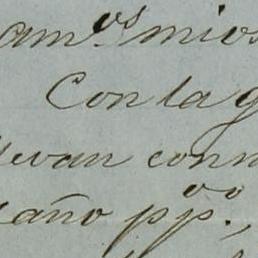 am.os mios
Con la g
llevan conm
año ppo.,